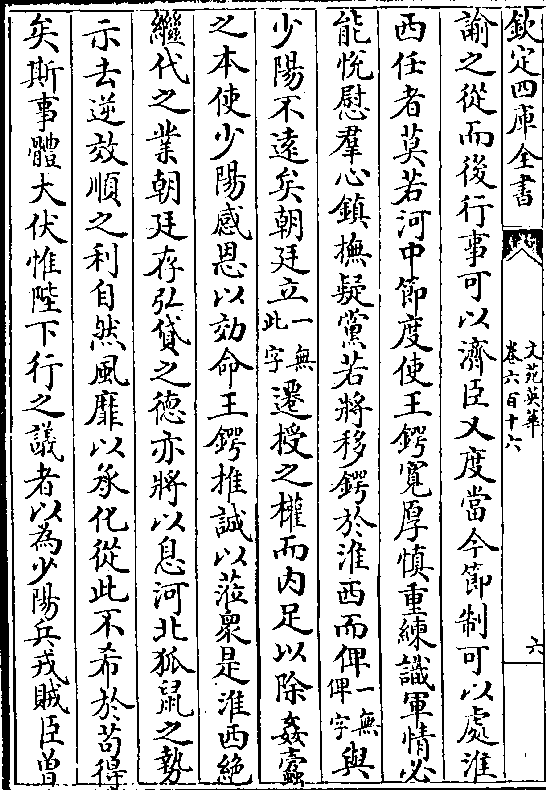 欽定四庫全書
文苑英華
卷六百十六
六
諭之從而後行事可以濟臣又度當今節制可以處淮
西任者莫若河中節度使王鍔寬厚慎重練識軍情必
能悅慰羣心鎮撫疑黨若將移鍔於淮西而俾一無俾字與
少陽不遠矣朝廷立一無此字遷授之權而内足以除姦蠧
之本使少陽感恩以効命王鍔推誠以蒞衆是淮西絶
繼代之業朝廷存弘貸之德亦將以息河北狐鼠之勢
示去逆效順之利自然風靡以承化從此不希於苟得
矣斯事體大伏惟陛下行之議者以為少陽兵戎賊臣曽